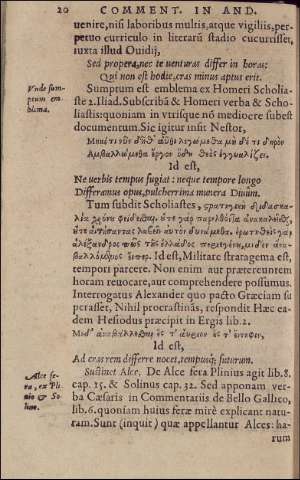 20 COMMENT. IN AND.
uenire, nisi laboribus multis, atque vigiliis, per-
petuo curriculo in literarū stadio cucurrisset,
iuxta illud Ouidij,
Sed propera, nec te venturas differ in horas:
Qui non est hodie, cras minus aptus erit.
Vnde sum-
ptum em-
blema.
Sumptum est emblema ex Homeri Scholia-
ste 2. Iliad. Subscribā & Homeri verba & Scho-
liastis: quoniam in vtrisque nō mediocre subest
documentum. Sic igitur insit Nestor,
Id est,
Ne verbis tempus fugiat: neque tempore longo
Differamus opus, pulcherrima munera Diuûm.
Tum subdit Scholiastes,
Id est, Militare stratagema est,
tempori parcere. Non enim aut præteruntem
horam reuocare, aut comprehendere possumus.
Interrogatus Alexander quo pacto Græciam su
perasset, Nihil procrastinās, respondit Hæc ea-
dem Hesiodus præcipit in Ergis lib. 2.
Id est,
Ad cras rem differre nocet, tempusq; futurum.
Alce fe-
ra, ex Pli-
nio & So-
lino.
Sustinet Alce. De Alce fera Plinius agit lib. 8.
cap. 15. & Solinus cap. 32. Sed apponam ver-
ba Cæsaris in Commentariis de Bello Gallico,
lib. 6. quoniam huius feræ mirè explicant natu-
ram. Sunt (inquit) quæ appellantur Alces: ha-
rum